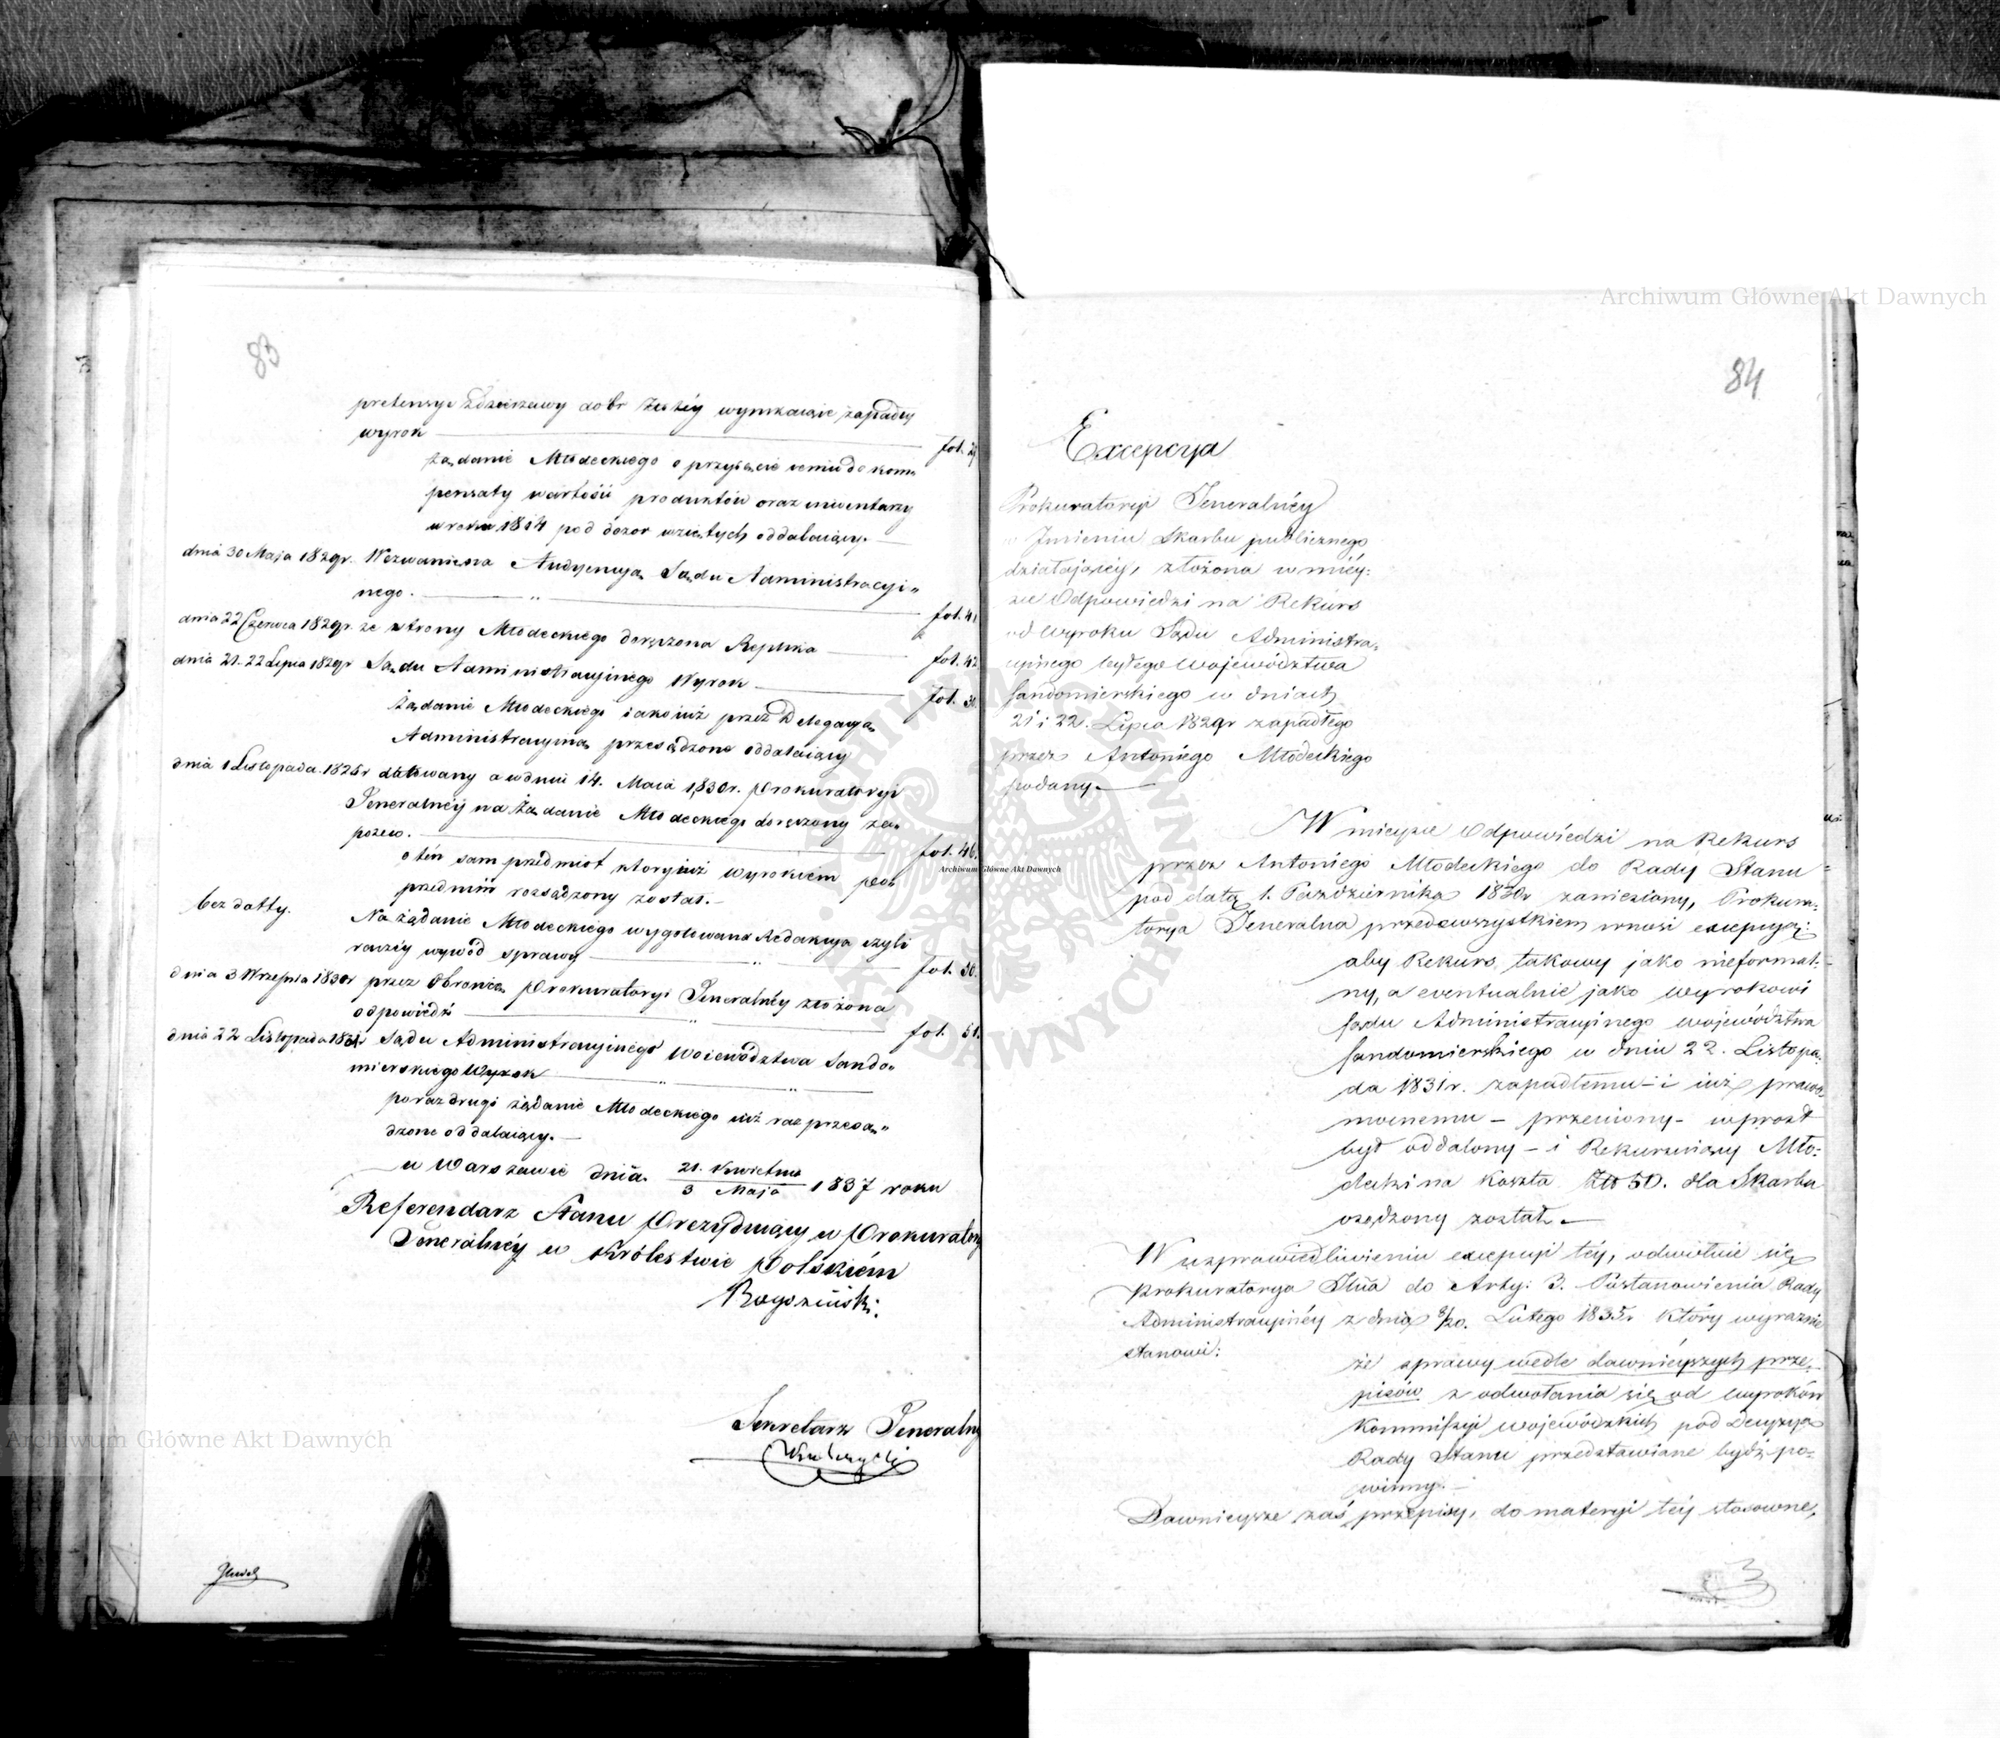 83
pretensye z dzierzawy dobr Zwoli wynikaiące zapadły
wyrok fol.
żądanie Młodeckiego o przyięcie iemu do kom„
pensaty wartości produktów oraz inwentarzy
w roku 1814 pod dozor wziętych oddalaiący.
dnia 30 Maja 1829r. Wezwanie na Audyencyą Sądu Administracyi„
nego. fol. 41
dnia 22 Czerwca 1829r. ze strony Młodeckiego doręczona Replika fol. 42
dnia 21. 22 Lipca 1829r Sądu Administracyjnego Wyrok fol. 31
Żądanie Młodeckiego iako iuż przez Delegacyą
Administracyiną przesądzone oddalaiący
dnia 1 Listopada 1825r datowany a w dniu 14. Maia 1830r. Prokuratoryi
Jeneralnéy na żądanie Młodeckiego doręczony za„
pozew. fol. 46.
o tén sam przedmiot który iuż wyrokiem po„
przednim rozsądzony został.
bez datty. Na żądanie Młodeckiego wygotowana Redakcya czyli
raczéy wywód sprawy fol. 50.
dnia 3 Września 1830r przez Obrońcę Prokuratoryi Jeneralnéy złożona
odpowiedź fol. 51.
dnia 22 Listopada 1831r Sądu Administracyjnego Województwa Sando„
mierskiego Wyrok
po raz drugi żądanie Młodeckiego iuż raz przesą„
dzone oddalaiący.
w Warszawie dnia 21. Kwietnia / 3 Maja 1837 roku
Referendarz Stanu Prezyduiący w Prokuratoryi
Jeneralnéy w Królestwie Polskiém
Rogoziński.
Sekretarz Jeneralny
84
Excepcya
Prokuratoryi Jeneralnéy
w Jmieniu Skarbu publicznego
działającéy, złożona w miéy:
sce Odpowiedzi na Rekurs
od wyroku Sądu Administra„
cyjnego byłego Województwa
Sandomierskiego w dniach
21 i 22. Lipca 1829r zapadłego
przez Antoniego Młodeckiego
podany.
W mieysce Odpowiedzi na Rekurs
przez Antoniego Młodeckiego do Rady Stanu
pod datą 1. Października 1830r zaniesiony, Prokura:
torya Jeneralna przedewszystkiem wnosi excepcyą:
aby Rekurs takowy jako nieformal:
ny, a eventualnie jako wyrokowi
Sądu Administracyjnego województwa
Sandomierskiego w dniu 22. Listopa:
da 1831r. zapadłemu – i już prawo„
mocnemu – przeciwny – wprost
był oddalony – i Rekurruiący Mło:
decki na koszta Złp 50. dla Skarbu
osądzony został.
W usprawiedliwieniu excepcyi téy, odwołuie się
Prokuratorya Jlna do Arty: 3. Postanowienia Rady
Administracyjnéy z dnia 8/20. Lutego 1835r Który wyraźnie
stanowi:
że sprawy wedle dawniéyszych prze„
pisów z odwołania się od wyroków
Kommissyi wojewódzkich pod Decyzyą
Rady Stanu przedstawiane bydź po„
winny.
Dawnieysze zaś przepisy, do materyi téy stosowne,
Archiwum Główne Akt Dawnych
Archiwum Główne Akt Dawnych
Archiwum Główne Akt Dawnych
ARCHIWUM GŁÓWNE AKT DAWNYCH